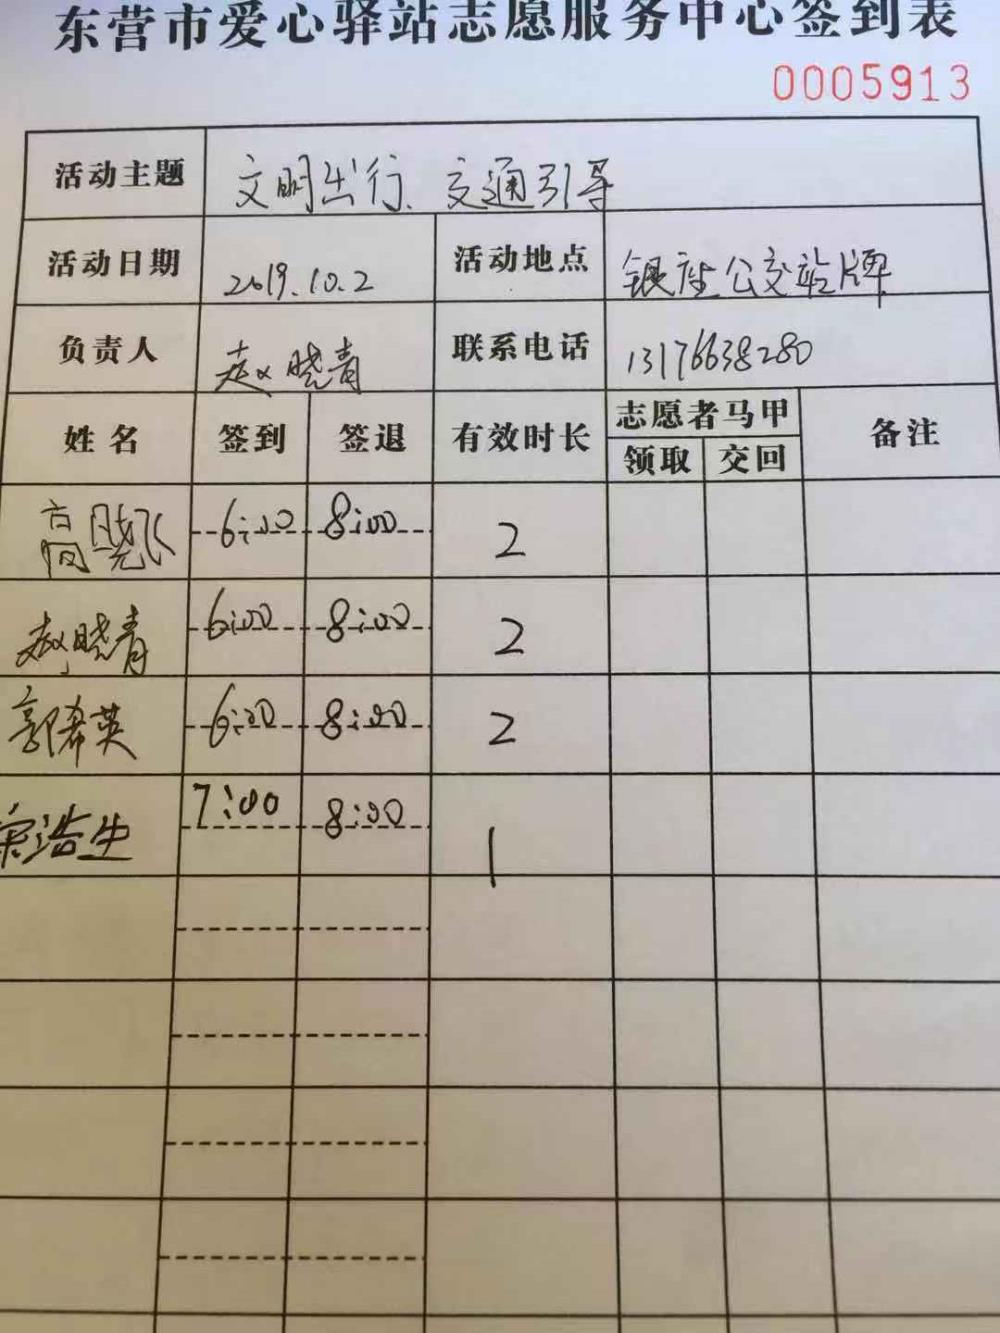 东营市爱心驿站志愿服务中心签到表
0005913
活动主题 文明出行、交通引导
活动日期 2019.10.2 活动地点 银座公交站牌
负责人 赵晓青 联系电话 13176638280
姓名 签到 签退 有效时长 志愿者马甲 备注
领取 交回
高晓飞 6:00 8:00 2
赵晓青 6:00 8:00 2
郭希英 6:00 8:00 2
宋浩生 7:00 8:00 1